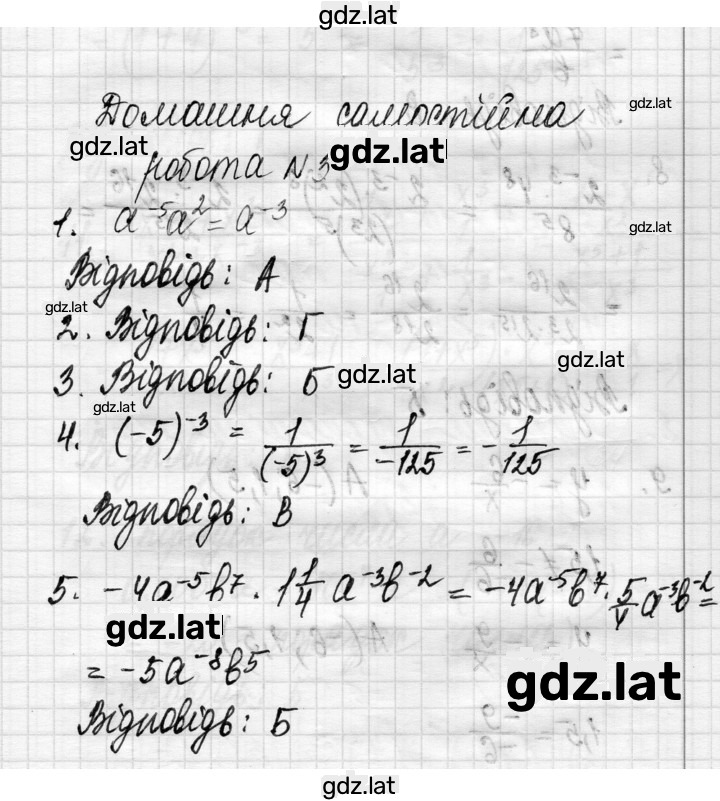 gdz.lat
Домашня самостійна
gdz.lat
gdz.lat
gdz.lat
робота N 3
1. a⁻⁵a² = a⁻³
gdz.lat
Відповідь: А
gdz.lat
2. Відповідь: Г
gdz.lat
3. Відповідь: Б
gdz.lat
gdz.lat
4. (-5)⁻³ = 1/(-5)³ = 1/-125 = -1/125
Відповідь: В
5. -4a⁻⁵b⁷ · 1 1/4 a⁻³b⁻² = -4a⁻⁵b⁷ · 5/4 a⁻³b⁻² =
gdz.lat
= -5a⁻⁸b⁵
gdz.lat
Відповідь: Б
gdz.lat